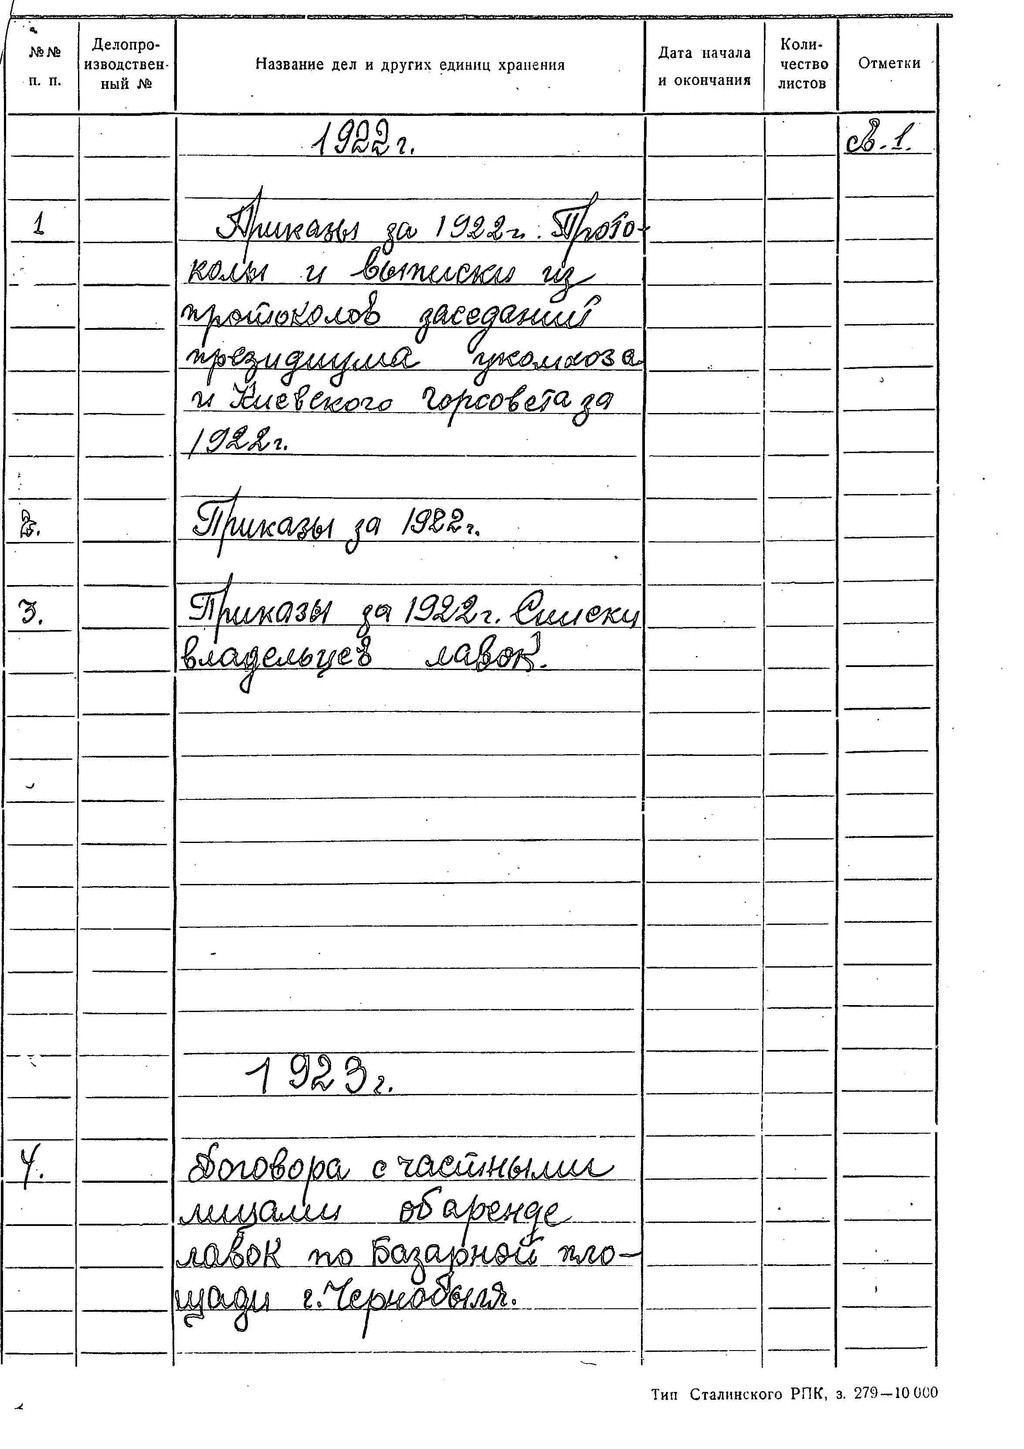 №№ п. п.
Делопро-
изводствен-
ный №
Название дел и других единиц хранения
Дата начала
и окончания
Коли-
чество
листов
Отметки
1922 г.
св. 1.
1
Приказы за 1922 г. Прото-
колы и выписки из
протоколов заседаний
президиума укомхоза
и Киевского горсовета за
1922 г.
2.
Приказы за 1922 г.
3.
Приказы за 1922 г. Списки
владельцев лавок.
1923 г.
4.
Договора с частными
лицами об аренде
лавок по Базарной пло-
щади г. Чернобыля.
Тип Сталинского РПК, з. 279—10 000